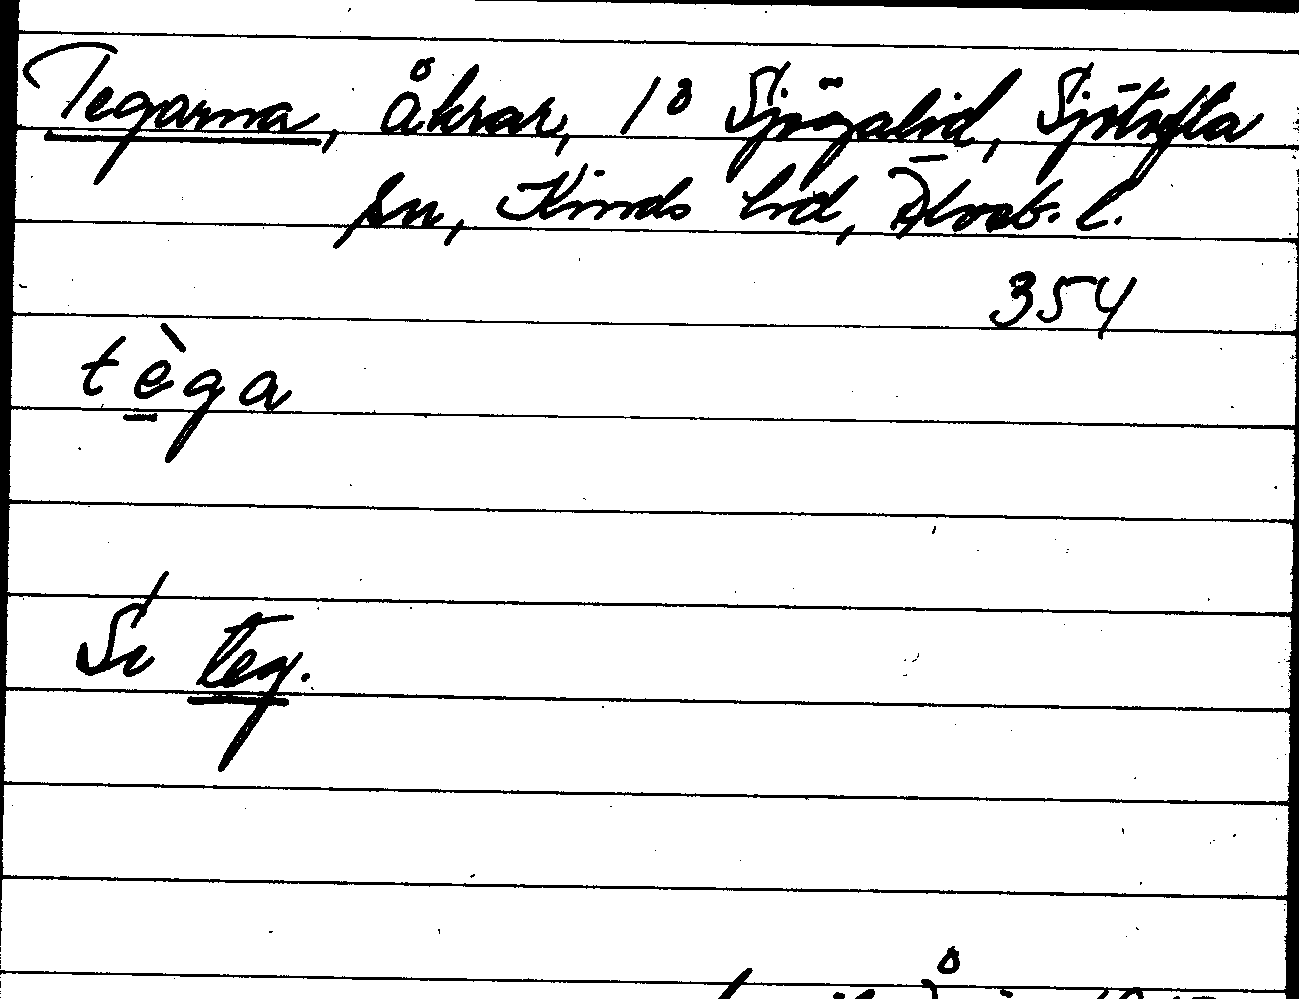 Tegarna, åkrar, 1⁸ Sjögalid, Sjötofta
sn, Kinds hd, Älvsb. l.
354
tèga
Se teg.